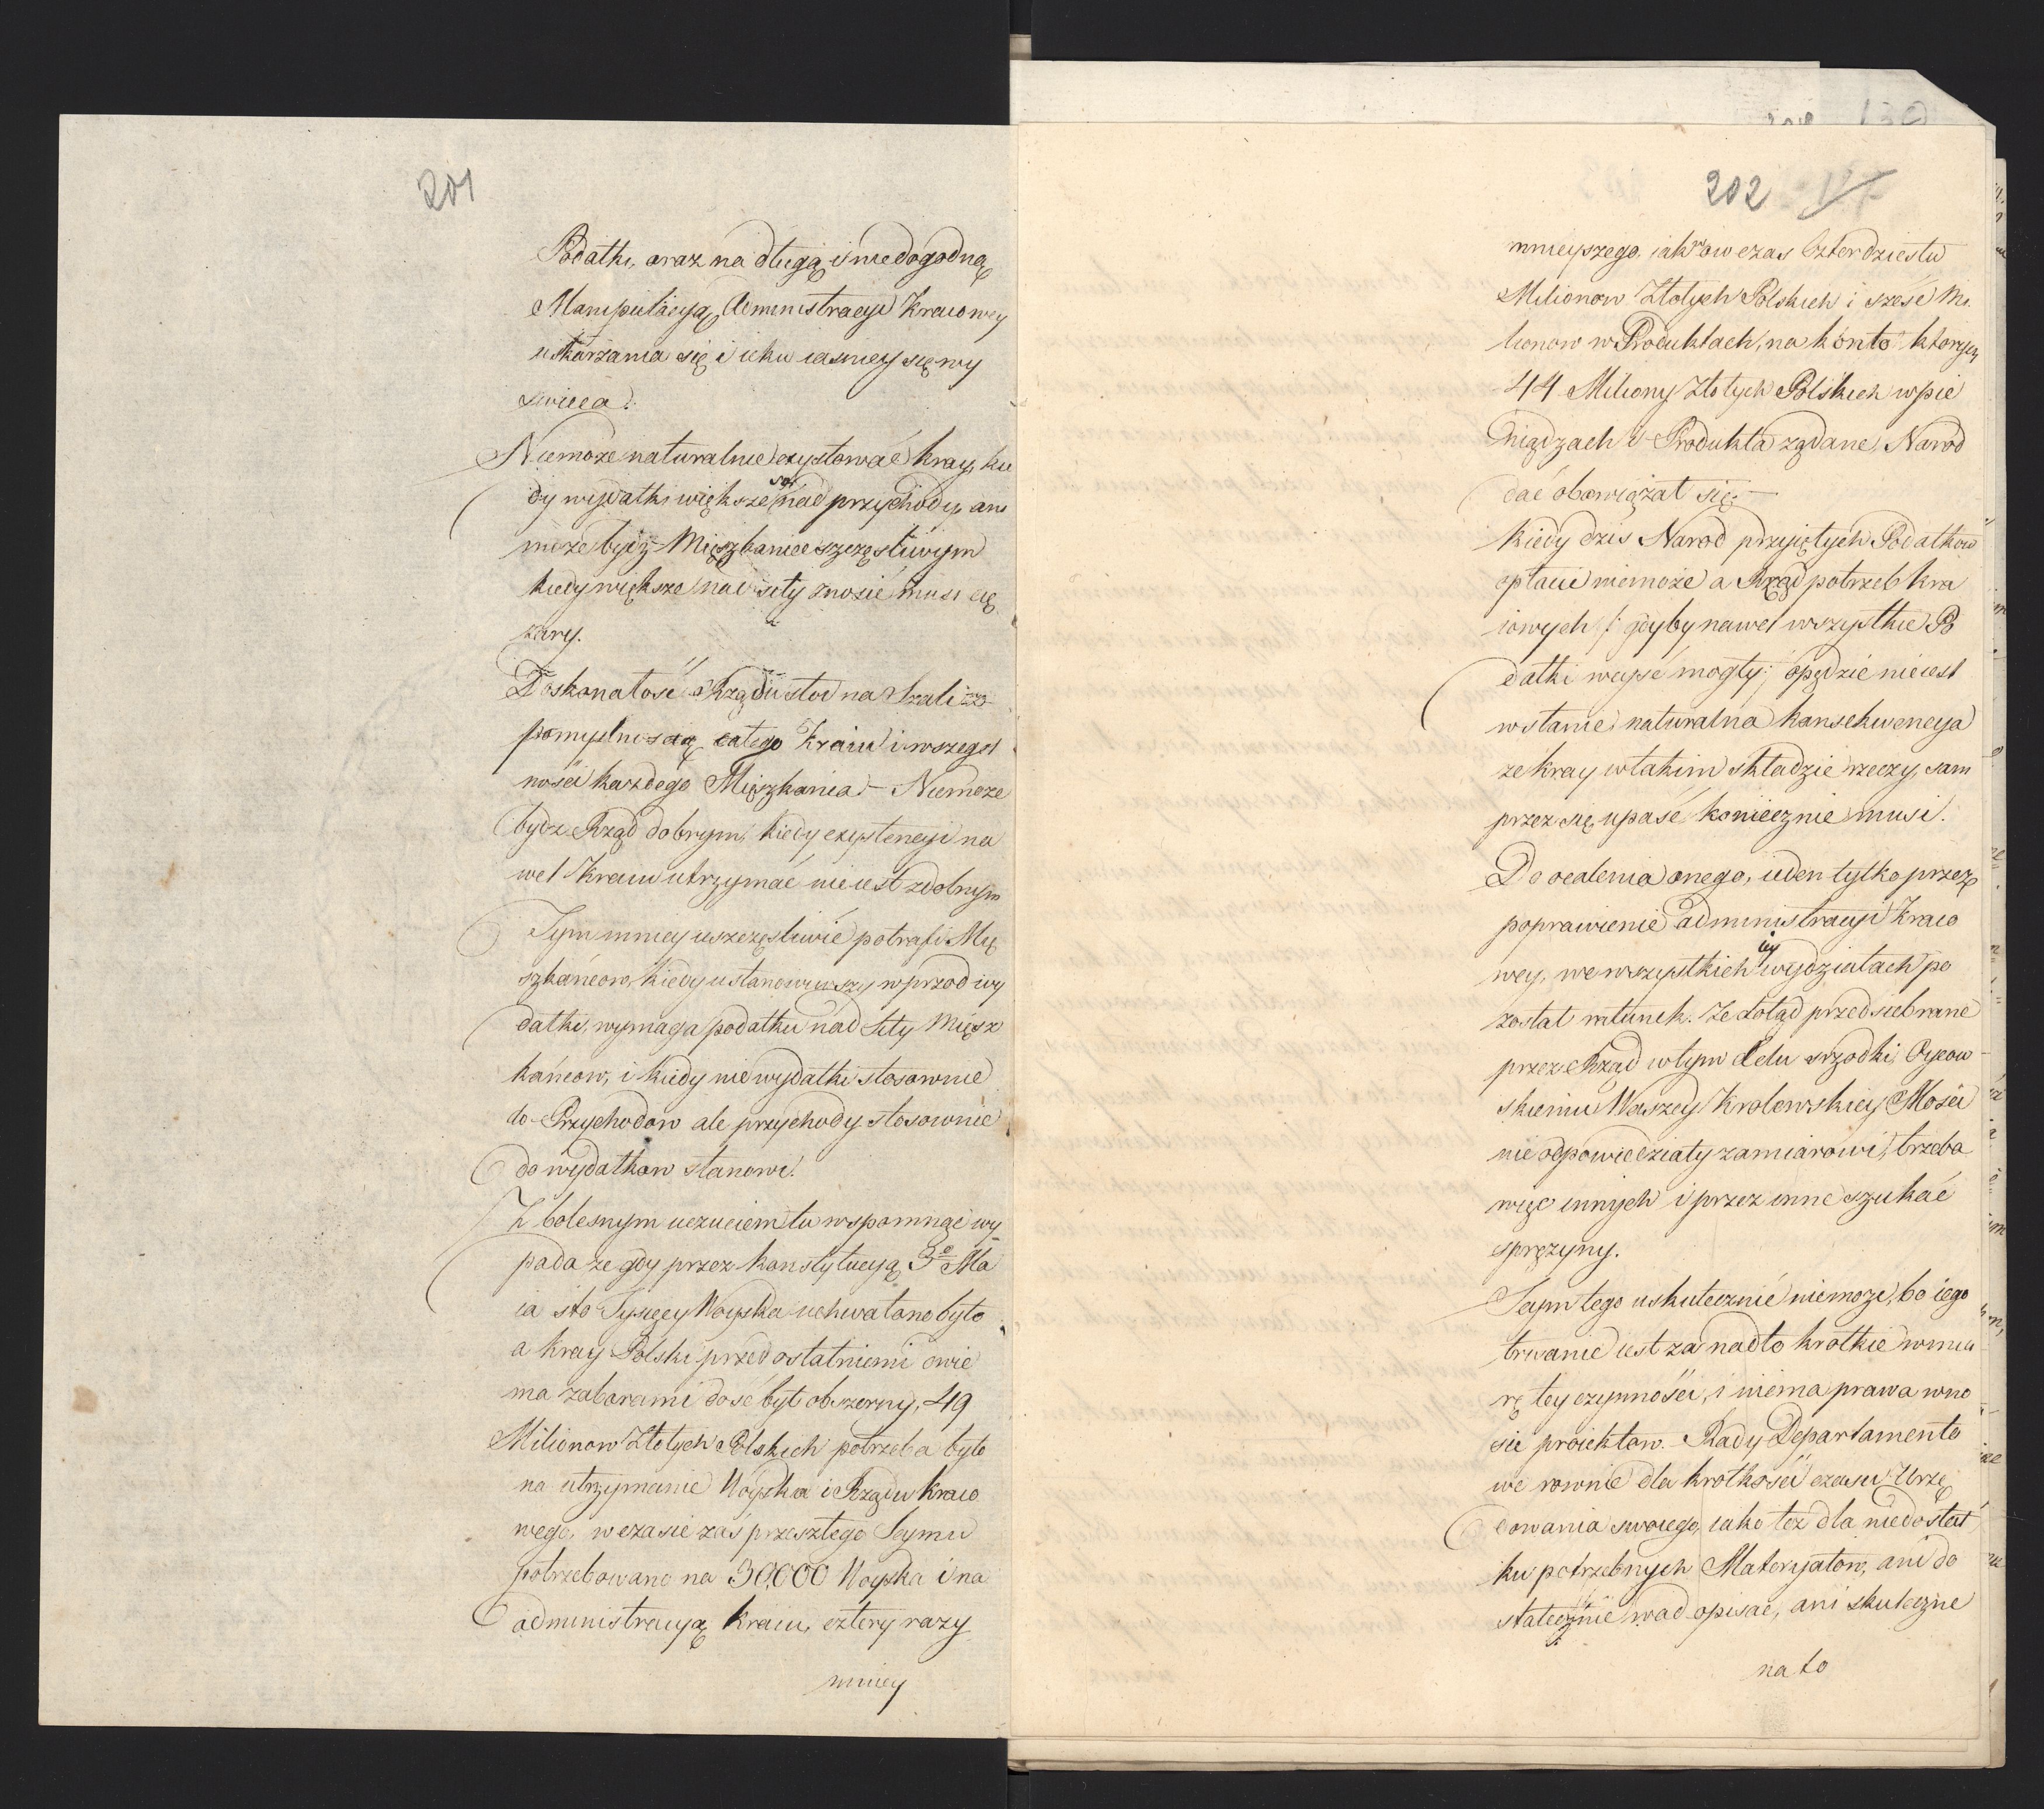 201
Podatki, oraz na długą i niedogodną
Manipulacyą Administracyi Kraiowey
uskarżania się i ieku iasniey się wy
swieca.
Niemoże naturalnie exystować kray, kie
dy wydatki większe są nad przychody, ani
może bydź Mięszkaniec szczęśliwym
kiedy większe nad siły znosić musi cię
żary.
Doskonałość Rządu stoi na Szali z
pomyslnością całego Kraiu i wszegul
ności każdego Mięszkańca. – Niemoże
bydz Rząd dobrym, kiedy exystencyi na
wet Kraiu utrzymać nie iest zdolnym
Tym mniey uszczęsliwić potrafi Mię
szkańcow, kiedy ustanowiwszy wprzod wy
datki, wymaga podatku nad siły Mięsz
kańcow, i kiedy nie wydatki stosownie
do Przychodow ale przychody stosownie
do wydatkow stanowi.
Z bolesnym uczuciem tu wspomnąć wy
pada że gdy przez konstytucyą 3o Ma
ia sto Tysięcy Woyska uchwalono było
a kray Polski przed ostatniemi dwie
ma zaborami dość był obszerny, 49
Milionow Złotych Polskich potrzeba było
na utrzymanie Woyska i Rządu kraio
wego, w czasie zaś przeszłego Seymu
potrzebowano na 30,000 Woyska i na
administracyą kraiu, cztery razy
mniey
202
mnieyszego, iak wowczas Czterdziestu
Milionow Złotych Polskich i sześć Mi
lionow w Produktach, na konto ktorych
44 Miliony Złotych Polskich w pie
niądzach i Produkta żądane, Narod
dać obowiązał się –
Kiedy dziś Narod przyiętych Podatkow
opłacić niemoże a Rząd potrzeb kra
iowych /: gdyby nawet wszystkie Po
datki weyść mogły :/ opędzić nie iest
w stanie, naturalna konsekwencya
że kray w takim składzie rzeczy, sam
przez się upaść koniecznie musi.
Do ocalenia onego, ieden tylko przez
poprawienie administracyi kraio
wey, we wszystkich iey wydziałach po
został ratunek. Że dotąd przedsiebrane
przez Rząd w tym Celu srzodki, Oycow
skiemu Waszey Krolewskiey Mości
nie odpowiedziały zamiarowi, trzeba
więc innych i przez inne szukać
sprężyny.
Seym tego uskutecznić niemoże, bo iego
trwanie iest za nadto krotkie w mia
rę tey czynności, i niema prawa wno
sić proiektow. – Rady Departamento
we rownie dla krotkości czasu Urzę
dowania swoiego, iako też dla niedostat
ku potrzebnych Materyałow, ani do
statecznie wad opisać, ani skuteczne
na to